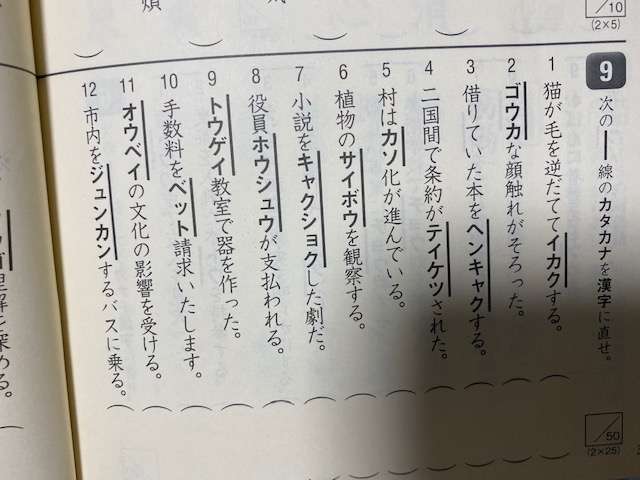 /10
(2×5)
9 次の━━線のカタカナを漢字に直せ。
/50
(2×25)
1 猫が毛を逆だててイカクする。
2 ゴウカな顔触れがそろった。
3 借りていた本をヘンキャクする。
4 二国間で条約がテイケツされた。
5 村はカソ化が進んでいる。
6 植物のサイボウを観察する。
7 小説をキャクショクした劇だ。
8 役員ホウシュウが支払われる。
9 トウゲイ教室で器を作った。
10 手数料をベット請求いたします。
11 オウベイの文化の影響を受ける。
12 市内をジュンカンするバスに乗る。